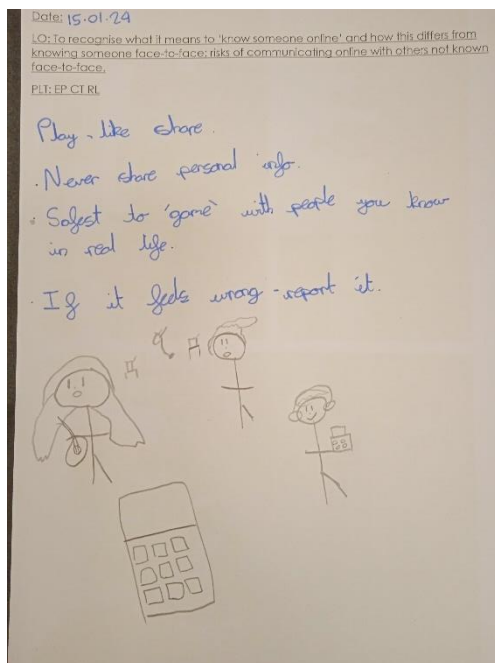 Date: 15.01.24
LO: To recognise what it means to 'know someone online' and how this differs from
knowing someone face-to-face; risks of communicating online with others not known
face-to-face.
PLT: EP CT RL
Play - like share.
· Never share personal info.
· Safest to 'game' with people you know
in real life.
· If it feels wrong - report it.